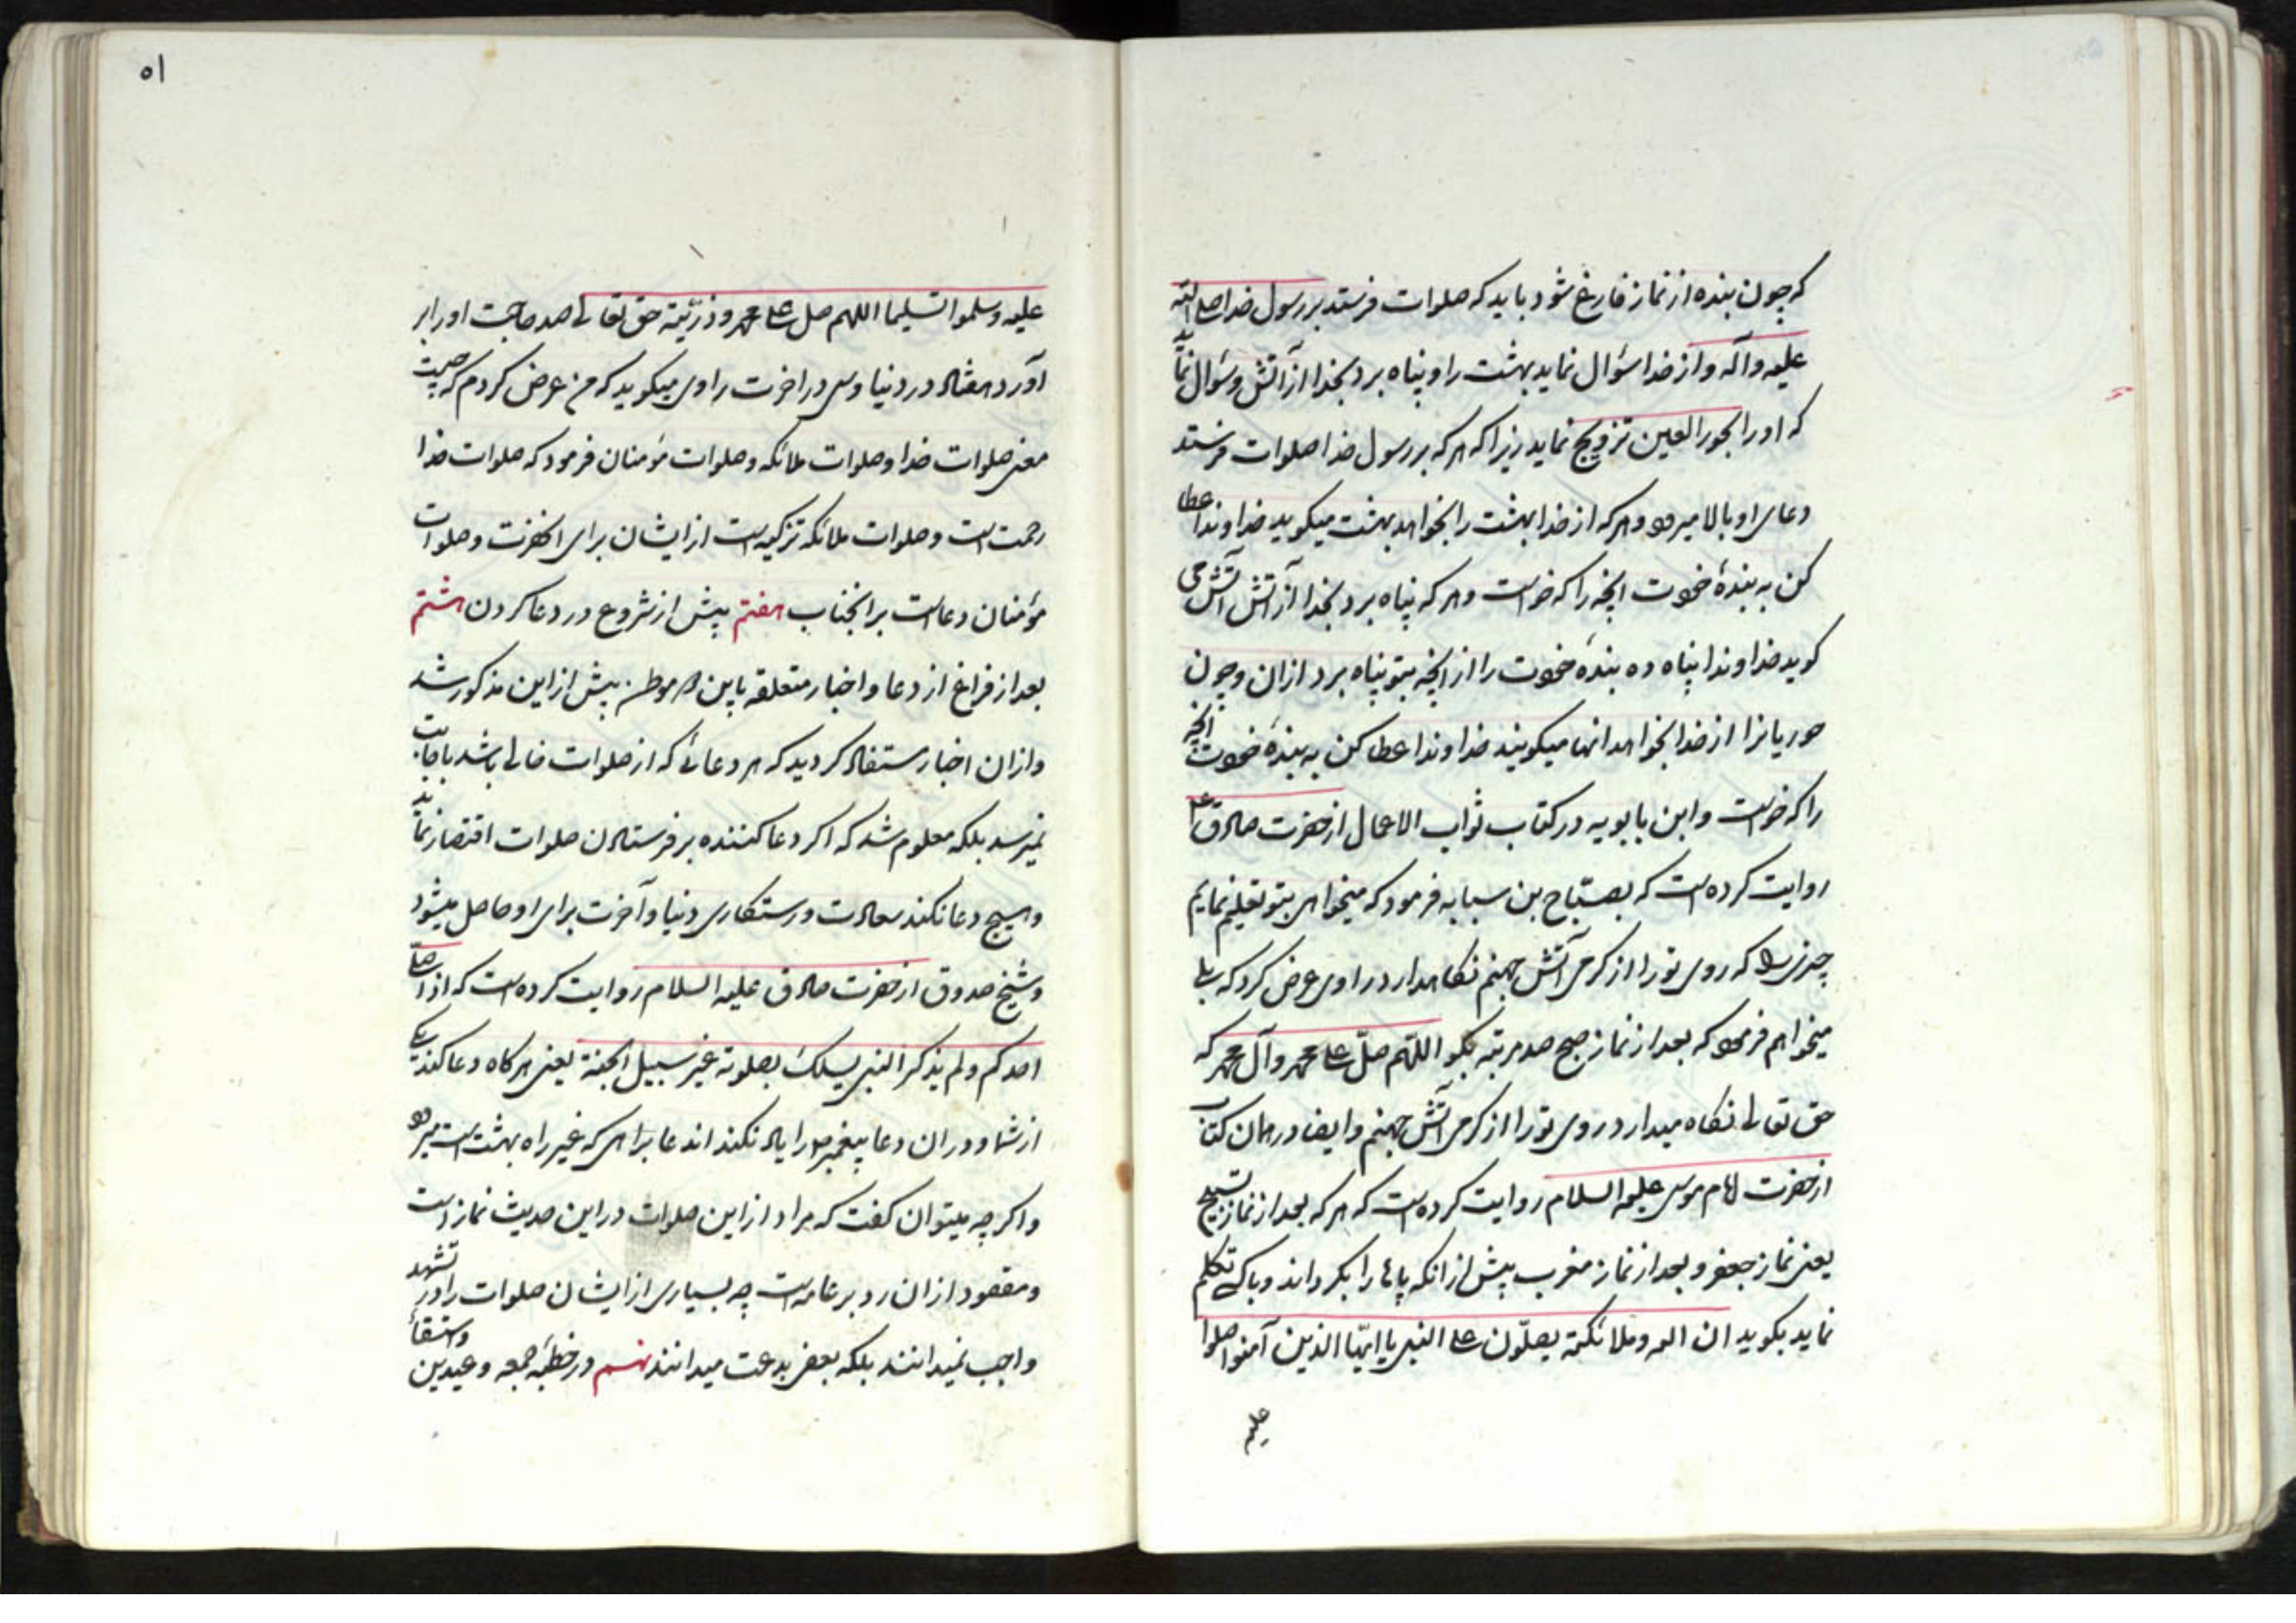 که چون بنده از نماز فارغ شود باید که صلوات فرستد بر رسول خدا صلی الله
علیه و آله و از خدا سؤال نماید بهشت را و پناه برد بخدا از آتش و سؤال نماید
که او را بحور العین تزویج نماید زیرا که هر که بر رسول خدا صلوات فرستد
دعای او بالا میرود و هر که از خدا بهشت را بخواهد بهشت میکوید خداوندا عطا
کن به بندهٔ خودت انچه را که خواست و هر که پناه برد بخدا از آتش آتش می
کوید خداوندا پناه ده بندهٔ خودت را از انچه بتو پناه برد ازان و چون
حوریانرا از خدا بخواهد انها میکویند خداوندا عطا کن به بندهٔ خودت انچه
را که خواست و ابن بابویه در کتاب ثواب الاعمال از حضرت صادق ع
روایت کرده است که بصبّاح بن سبابه فرمود که میخواهی بتو تعلیم نمایم
چیزی را که روی تو را از کرمی آتش جهنم نکاهدارد راوی عرض کرد که بلی
میخواهم فرمود که بعد از نماز صبح صد مرتبه بکو اللّهم صلّ علی محمد و آل محمد که
حق تعالی نکاه میدارد روی تو را از کرمی آتش جهنم و ایضا در همان کتاب
از حضرت امام موسی علیه السلام روایت کرده است که هر که بعد از نماز تسبیح
یعنی نماز جعفر و بعد از نماز مغرب پیش از انکه پاها را بکرداند و با کسی تکلم
نماید بکوید ان الله و ملائکته یصلّون علی النبی یا ایّها الذین آمنوا صلوا
علیه
۵۱
علیه و سلموا تسلیما اللهم صل علی محمد و ذرّیّته حق تعالی صد حاجت او را بر
آورد هفتاد در دنیا و سی در اخرت راوی میکوید که من عرض کردم که چیست
معنی صلوات خدا و صلوات ملائکه و صلوات مؤمنان فرمود که صلوات خدا
رحمت است و صلوات ملائکه تزکیه است از ایشان برای انحضرت و صلوات
مؤمنان دعاست بر انجناب هفتم پیش از شروع در دعا کردن هشتم
بعد از فراغ از دعا و اخبار متعلقه باین دو موطن پیش از این مذکور شد
و ازان اخبار مستفاد کردید که هر دعائی که از صلوات خالی باشد باجابت
نمیرسد بلکه معلوم شد که اکر دعا کننده بر فرستادن صلوات اقتصار نماید
و هیچ دعا نکند سعادت و رستکاری دنیا و آخرت برای او حاصل میشود
و شیخ صدوق از حضرت صادق علیه السلام روایت کرده است که اذا صلی
احدکم و لم یذکر النبی یسلک بصلوته غیر سبیل الجنة یعنی هر کاه دعا کند یکی
از شما و دران دعا پیغمبر ص را یاد نکند اند عا براهی که غیر راه بهشت است میرود
و اکر چه میتوان کفت که مراد از این صلوات در این حدیث نماز است
و مقصود ازان رد بر عامه است چه بسیاری از ایشان صلوات را در تشهد
واجب نمیدانند بلکه بعضی بدعت میدانند نهم در خطبهٔ جمعه و عیدین و استسقاء